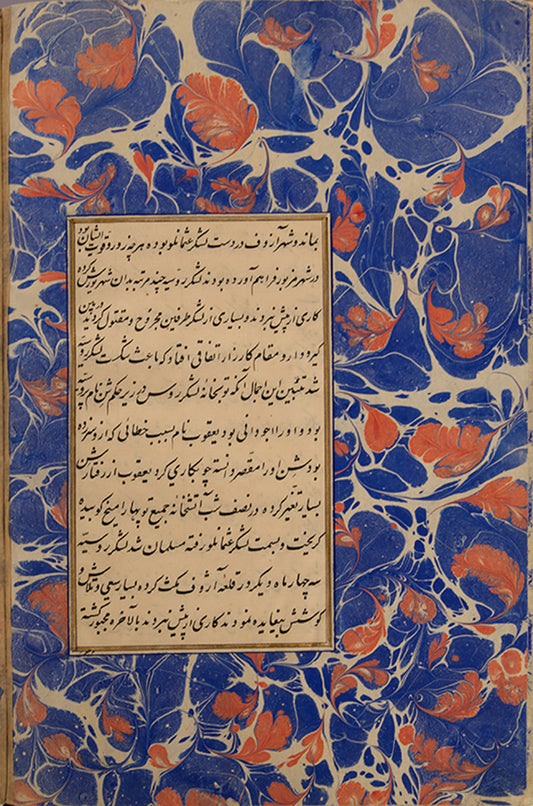 بمانده و شهر آزوف در دست لشکر عثمانلو بوده هر چه زور و قوت ایشان بود
در شهر مزبور فراهم آورده بودند لشکر روسیه چند مرتبه بدان شهر یورش کرده
کاری از پیش نبردند و بسیاری از لشکر طرفین مجروح و مقتول کردند در بین
گیر و دار و مقام کارزار اتفاقی افتاد که باعث شکست لشکر روسیه
شد تبیین این اجمال آنکه توپخانهٔ لشکر روس در زیر حکم شن نام پروسیه
بود و او را جودانی بود یعقوب نام بسبب خطائی که از و سر زده
بود شن او را مقصر دانسته چوبکاری کرد یعقوب از رفتار شن
بسیار تغیر کرده در نصف شب آتشخانه جمیع توپها را میخ کوبیده
گریخت و بسمت لشکر عثمانلو رفته مسلمان شد لشکر روسیه
سه چهار ماه دیگر در قلعه آزوف مکث کرده بسیار سعی و تلاش و
کوشش بیفایده نمودند کاری از پیش نبردند بالآخره مجبور گشته